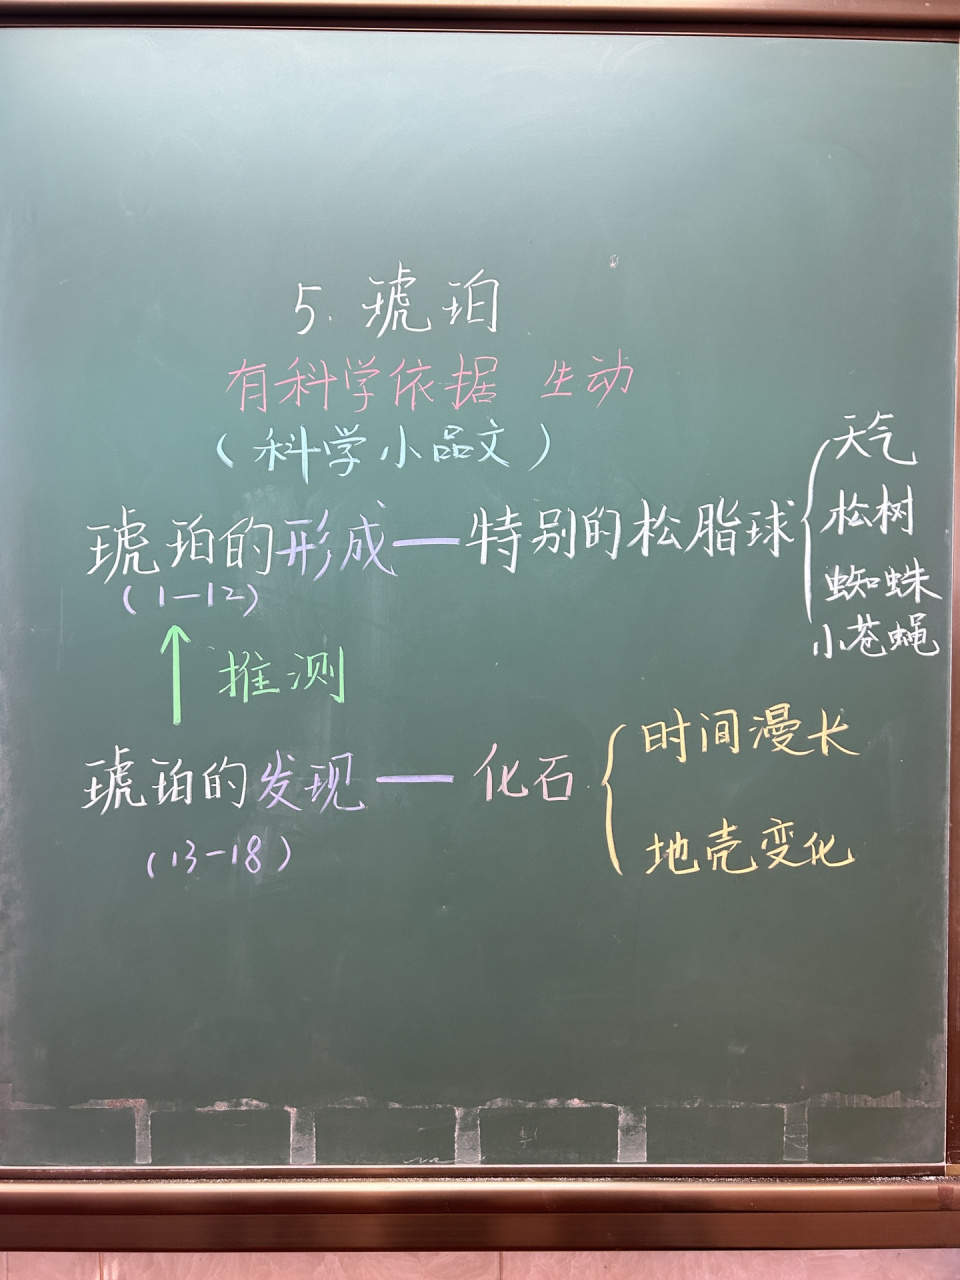 5. 琥珀
有科学依据 生动
(科学小品文)
琥珀的形成—特别的松脂球
天气
松树
蜘蛛
小苍蝇
(1—12)
推测
琥珀的发现—化石
时间漫长
地壳变化
(13-18)